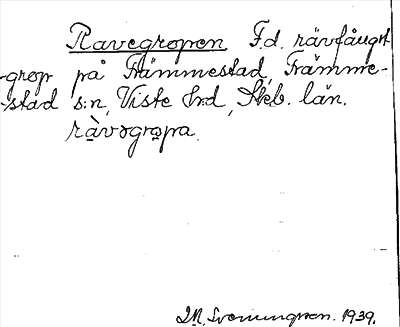 Ravegropen F.d. rävfångst
-grop på Främmestad, Främme-
-stad s:n, Viste hrd, Skb. län.
ràvɔgrɔpa.
Svenungsson. 1939.